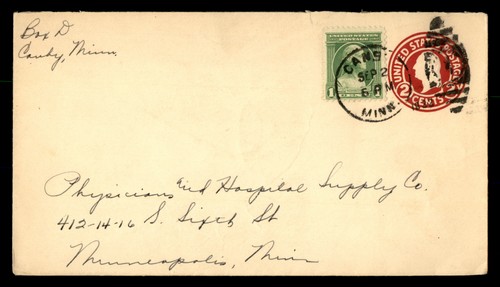 Box D
Canby, Minn.
UNITED STATES
POSTAGE
1
CANBY
SEP 2
6 PM
MINN.
UNITED STATES POSTAGE
2 CENTS
Physicians and Hospital Supply Co.
412-14-16 S. Sixth St
Minneapolis, Minn